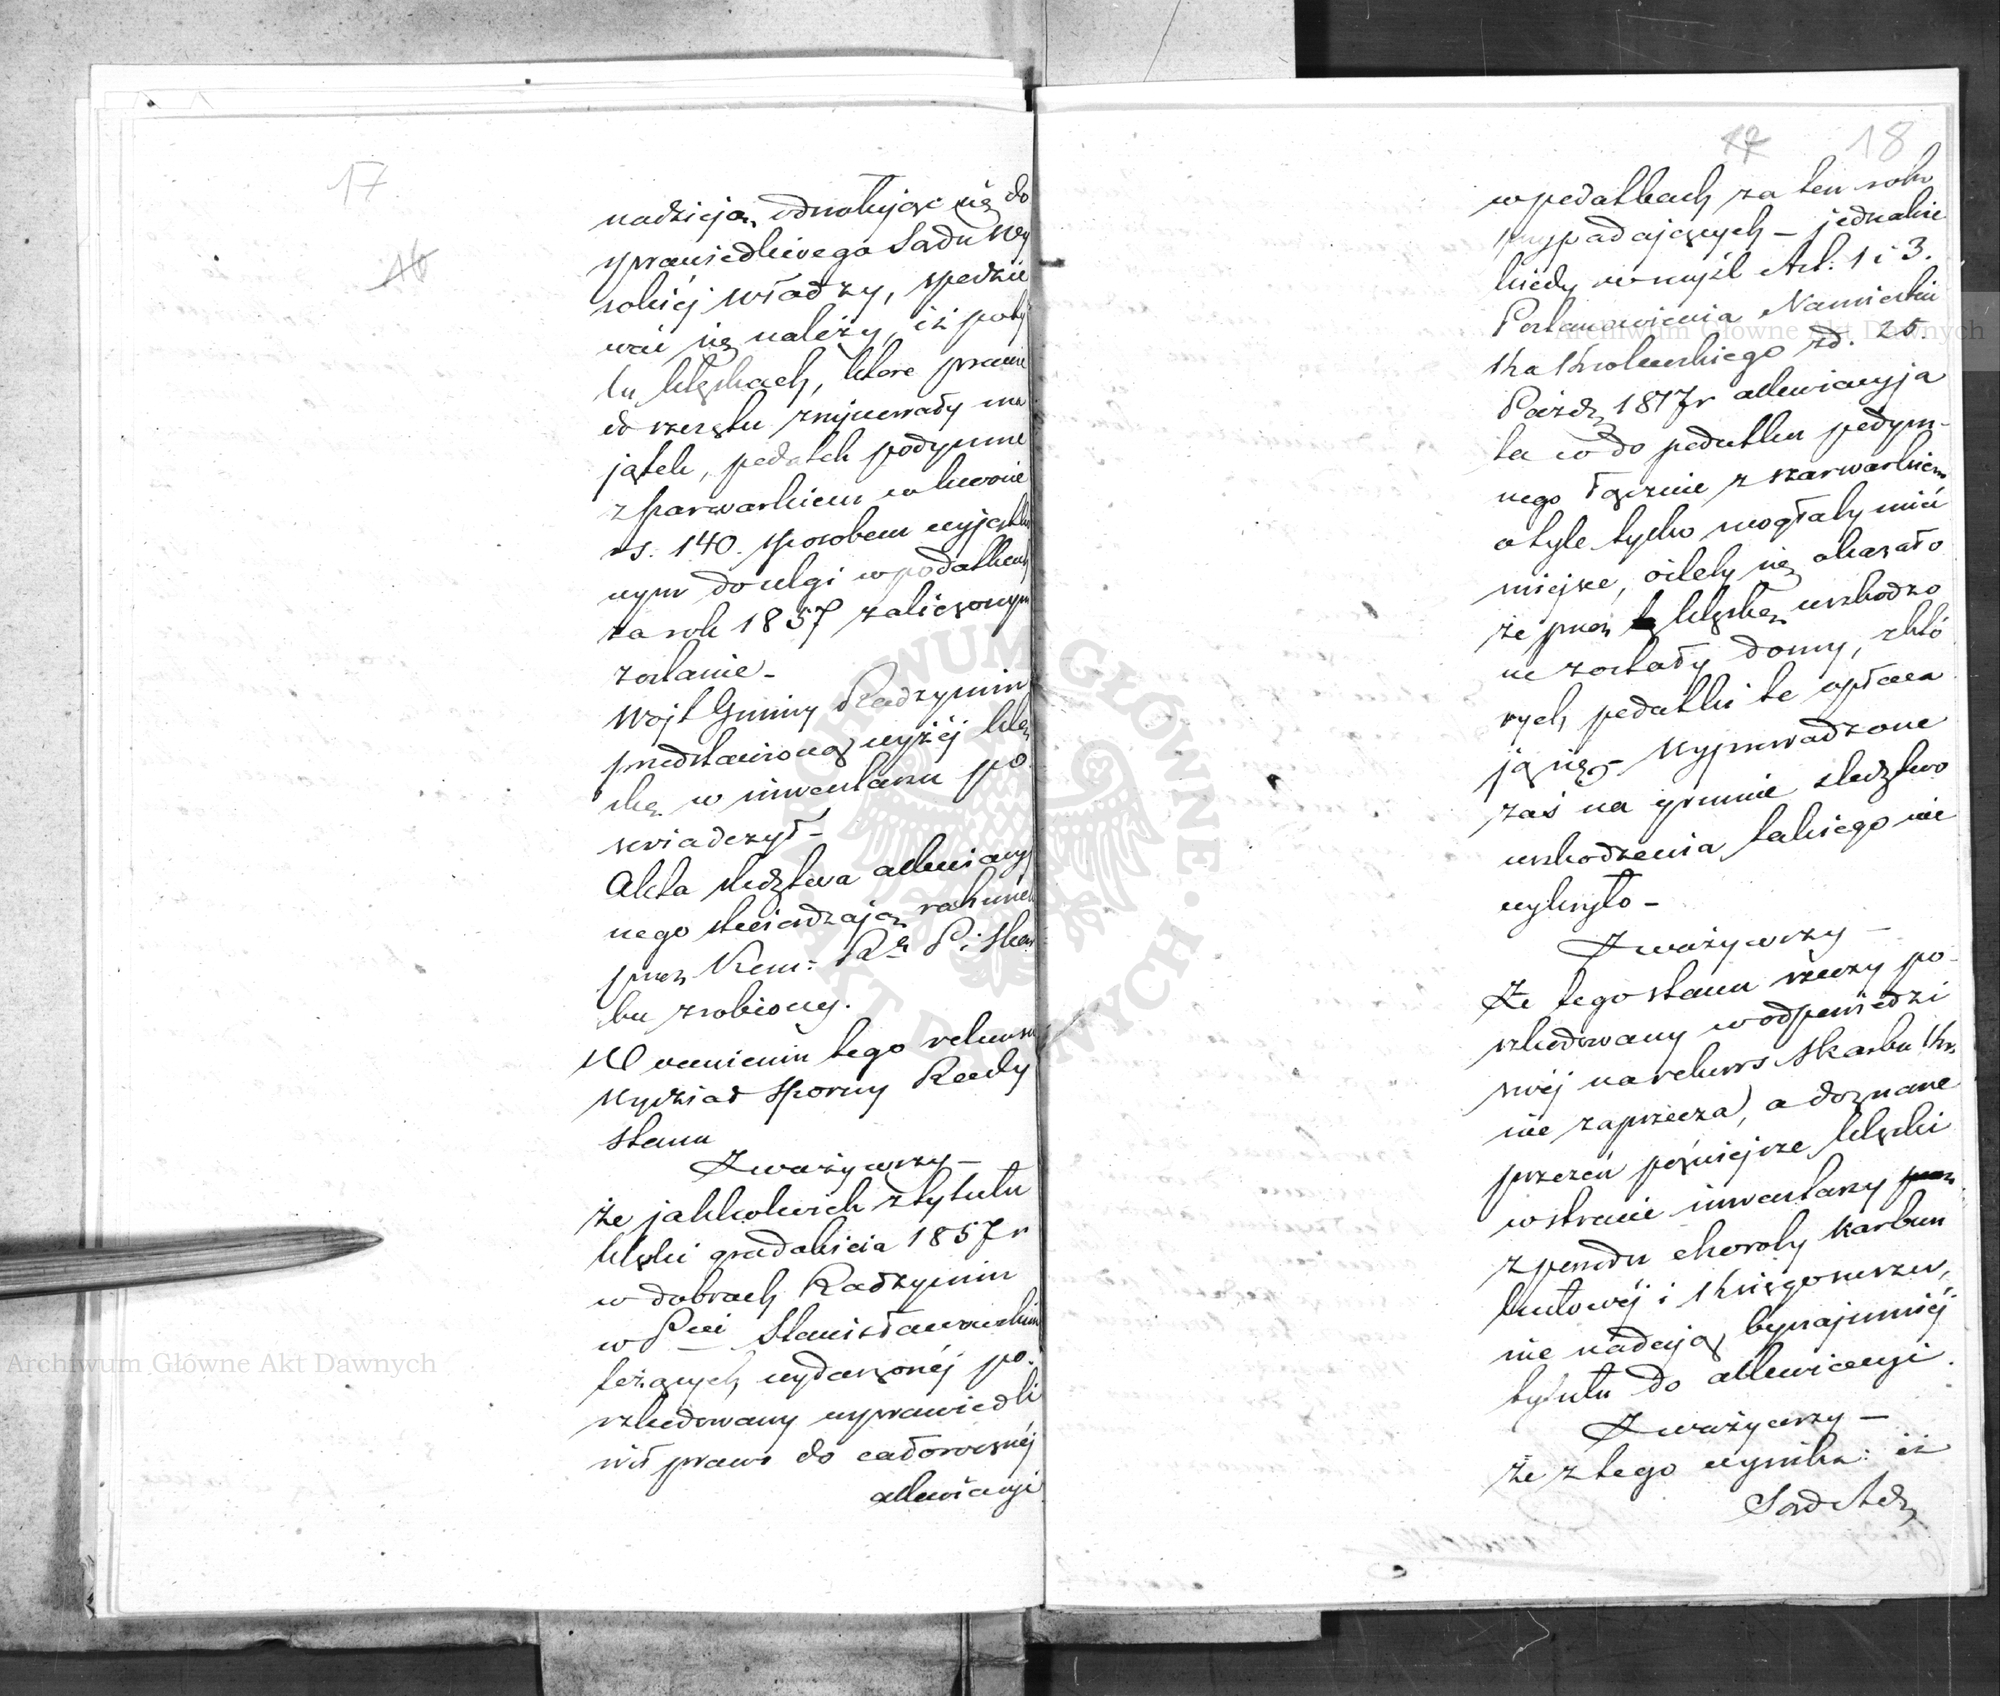 17
16
nadzieją, odwołując się do
sprawiedliwego Sądu Wy
sokiéj Władzy, spodzie
wać się należy, iż po
tu klęskach, które prawie
do szczętu zrujnowały ma
jątek, podatek podymne
z szarwarkiem w kwocie
rs. 140. sposobem wyjątko
wym do ulgi w podatkach
za rok 1857 zaliczonym
zostanie –
Wójt Gminy Radzymin
przedstawioną wyżéj klę
skę w inwentarzu po
świadczył –
Akta śledztwa allewiacyj
nego stwierdzają rachunek
przez Kom: Rz P. i Skar
bu zrobiony.
W ocenieniu tego rekursu
Wydział Sporny Rady
Stanu
Zważywszy –
Że jakkolwiek z tytułu
klęski gradobicia 1857 r
w dobrach Radzymin
w Pcie Stanisławowskim
leżących, wydarzonéj po
szkodowany usprawiedli
wił prawo do całorocznéj
allewiacyi
17
18
w podatkach za ten rok
przypadających – jednakże
kiedy w myśl Art: 1 i 3.
Postanowienia Namiestni
ka Królewskiego z d. 25.
Paźdz 1817 r allewiacyja
ta co do podatku podym-
nego łącznie z szarwarkiem
o tyle tylko mogłaby mieć
miejsce, oileby się okazało
że przez tę klęskę uszkodzo
ne zostały domy, z któ
rych podatki te opłaca
ją się – Wyprowadzone
zaś na gruncie śledztwo
uszkodzenia takiego nie
wykryło –
Zważywszy –
Że tego stanu rzeczy po-
szkodowany w odpowiedzi
swéj na rekurs Skarbu Kr.
nie zaprzecza, a doznane
przezeń późniejsze klęski
w stracie inwentarzy
z powodu choroby karbun
kułowéj i Księgosuszu,
nie nadają bynajmniéj
tytułu do allewiacyi.
Zważywszy –
Że z tego wynika: iż
Sąd Adm
Archiwum Główne Akt Dawnych
Archiwum Główne Akt Dawnych
ARCHIWUM GŁÓWNE AKT DAWNYCH